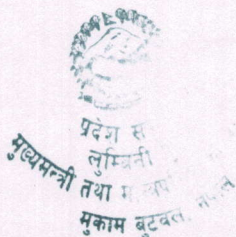 प्रदेश स
लुम्बिनी
मुख्यमन्त्री तथा म
मुकाम बुटवल, नेपाल